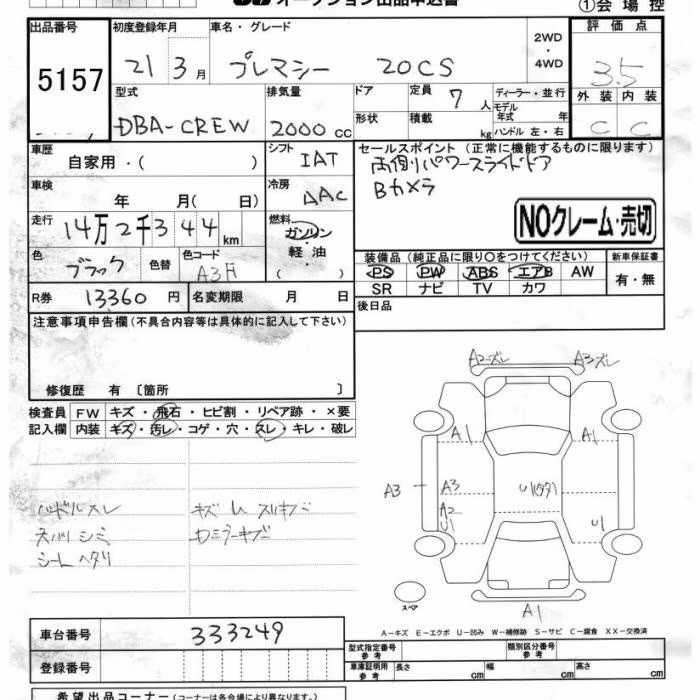 オークション出品申込書
①会場控
出品番号 初度登録年月 車名・グレード 2WD ・ 4WD 評価点
5157 21 3月 プレマシー 20CS 3.5
型式 排気量 ドア 定員 7人 ディーラー・並行 外装 内装
DBA-CREW 2000cc 形状 積載 kg モデル年式 年 ハンドル 左・右 C C
車歴 自家用・( ) シフト IAT セールスポイント(正常に機能するものに限ります)
両側パワースライドドア
Bカメラ
車検 年 月( 日) 冷房 AAC
走行 14万2千344km 燃料 ガソリン・軽油・( )
NOクレーム・売切
色 ブラック 色替 色コード A3F
装備品(純正品に限り〇をつけてください) 新車保証書
PS PW ABS エアB AW 有・無
SR ナビ TV カワ
R券 13360円 名変期限 月 日 後日品
注意事項申告欄(不具合内容等は具体的に記入して下さい)
修復歴 有 〔箇所 〕
検査員 FW キズ・飛石・ヒビ割・リペア跡・×要
記入欄 内装 キズ・汚レ・コゲ・穴・スレ・キレ・破レ
A2ズレ A3ズレ
A1 A1
A3 A3
A2
U1 U1
ハンドルスレ
シートヘタリ
スペア
A1
A-キズ E-エクボ U-凹み W-補修跡 S-サビ C-腐食 XX-交換済
車台番号 333249
型式指定番号 参考 類別区分番号 参考
登録番号
車庫証明用 参考 長さ cm 幅 cm 高さ cm
希望出品コーナー(コーナーは各会場により異なります。)